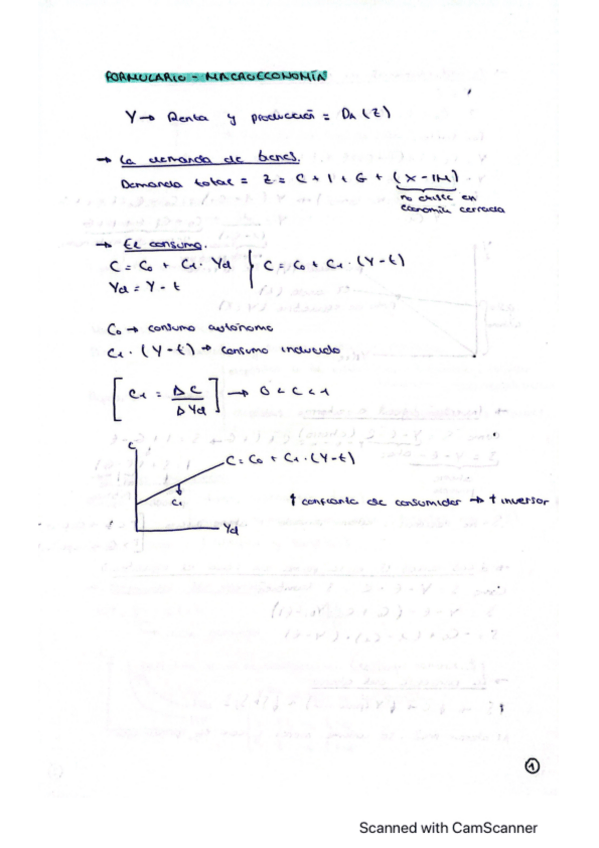 FORMULARIO - MACROECONOMÍA
Y → Renta y producción = DA (Z)
→ La demanda de bienes.
Demanda total = Z = C + I + G + (X - IM)
no existe en
economía cerrada
→ El consumo.
C = C0 + C1 · Yd } C = C0 + C1 · (Y - t)
Yd = Y - t
C0 → consumo autónomo
C1 · (Y - t) → consumo inducido
[ C1 = ΔC / ΔYd ] → 0 < C < 1
C
C = C0 + C1 · (Y - t)
C1
Yd
↑ confianza de consumidor → ↑ inversor
1
Scanned with CamScanner